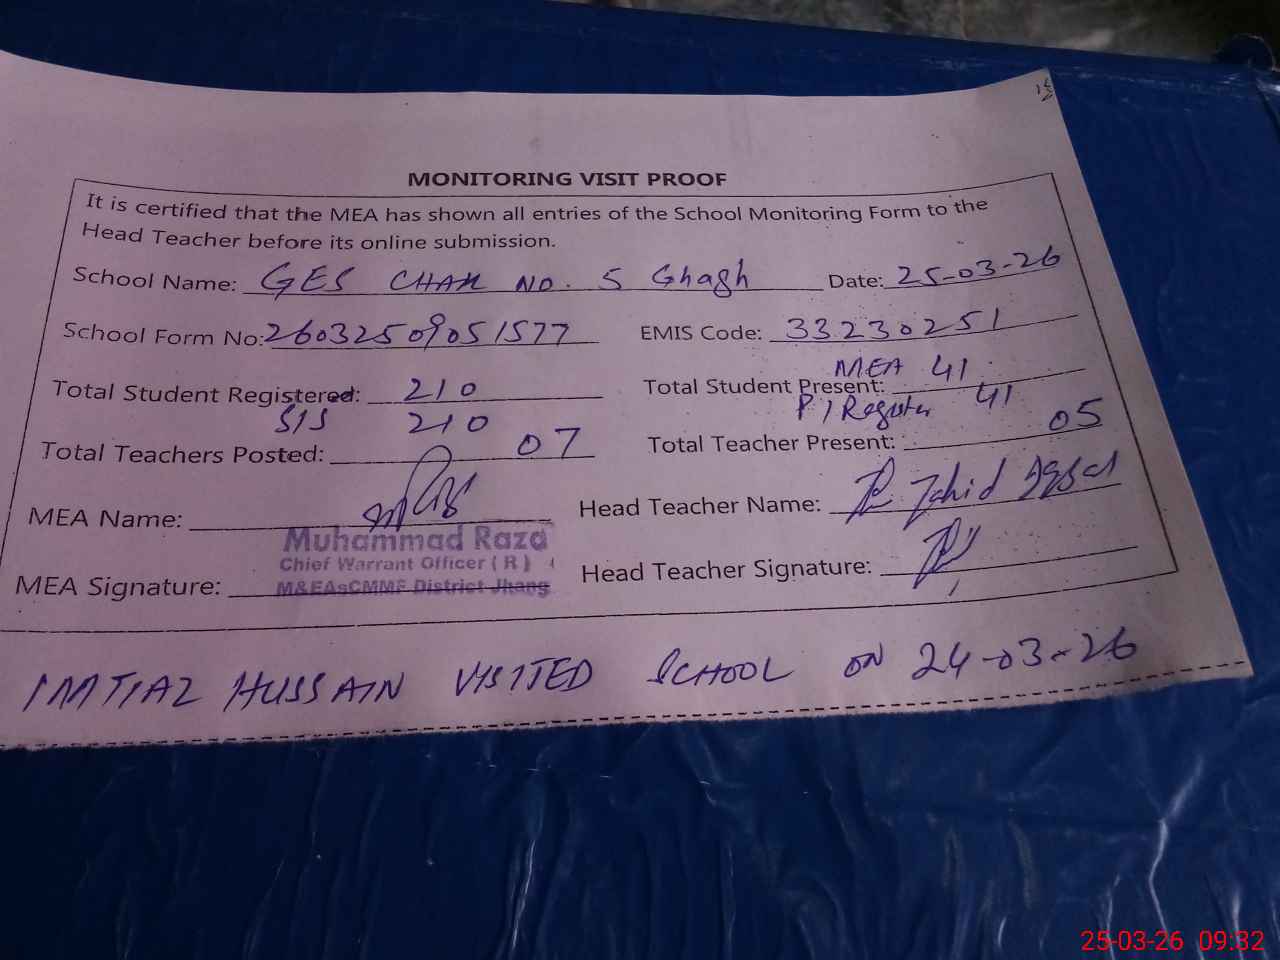 MONITORING VISIT PROOF
It is certified that the MEA has shown all entries of the School Monitoring Form to the
Head Teacher before its online submission.
School Name: GES CHAK NO. 5 Ghagh Date: 25-03-26
School Form No: 26032509051577 EMIS Code: 33230251
MEA 41
Total Student Registered: 210 Total Student Present:
SIS 210 P/Register 41
Total Teachers Posted: 07 Total Teacher Present: 05
MEA Name: Head Teacher Name: Zahid Iqbal
Muhammad Raza
Chief Warrant Officer ( R )
MEA Signature: M&EAsCMMF District Jhang Head Teacher Signature:
IMTIAZ HUSSAIN VISITED SCHOOL ON 24-03-26
25-03-26 09:32